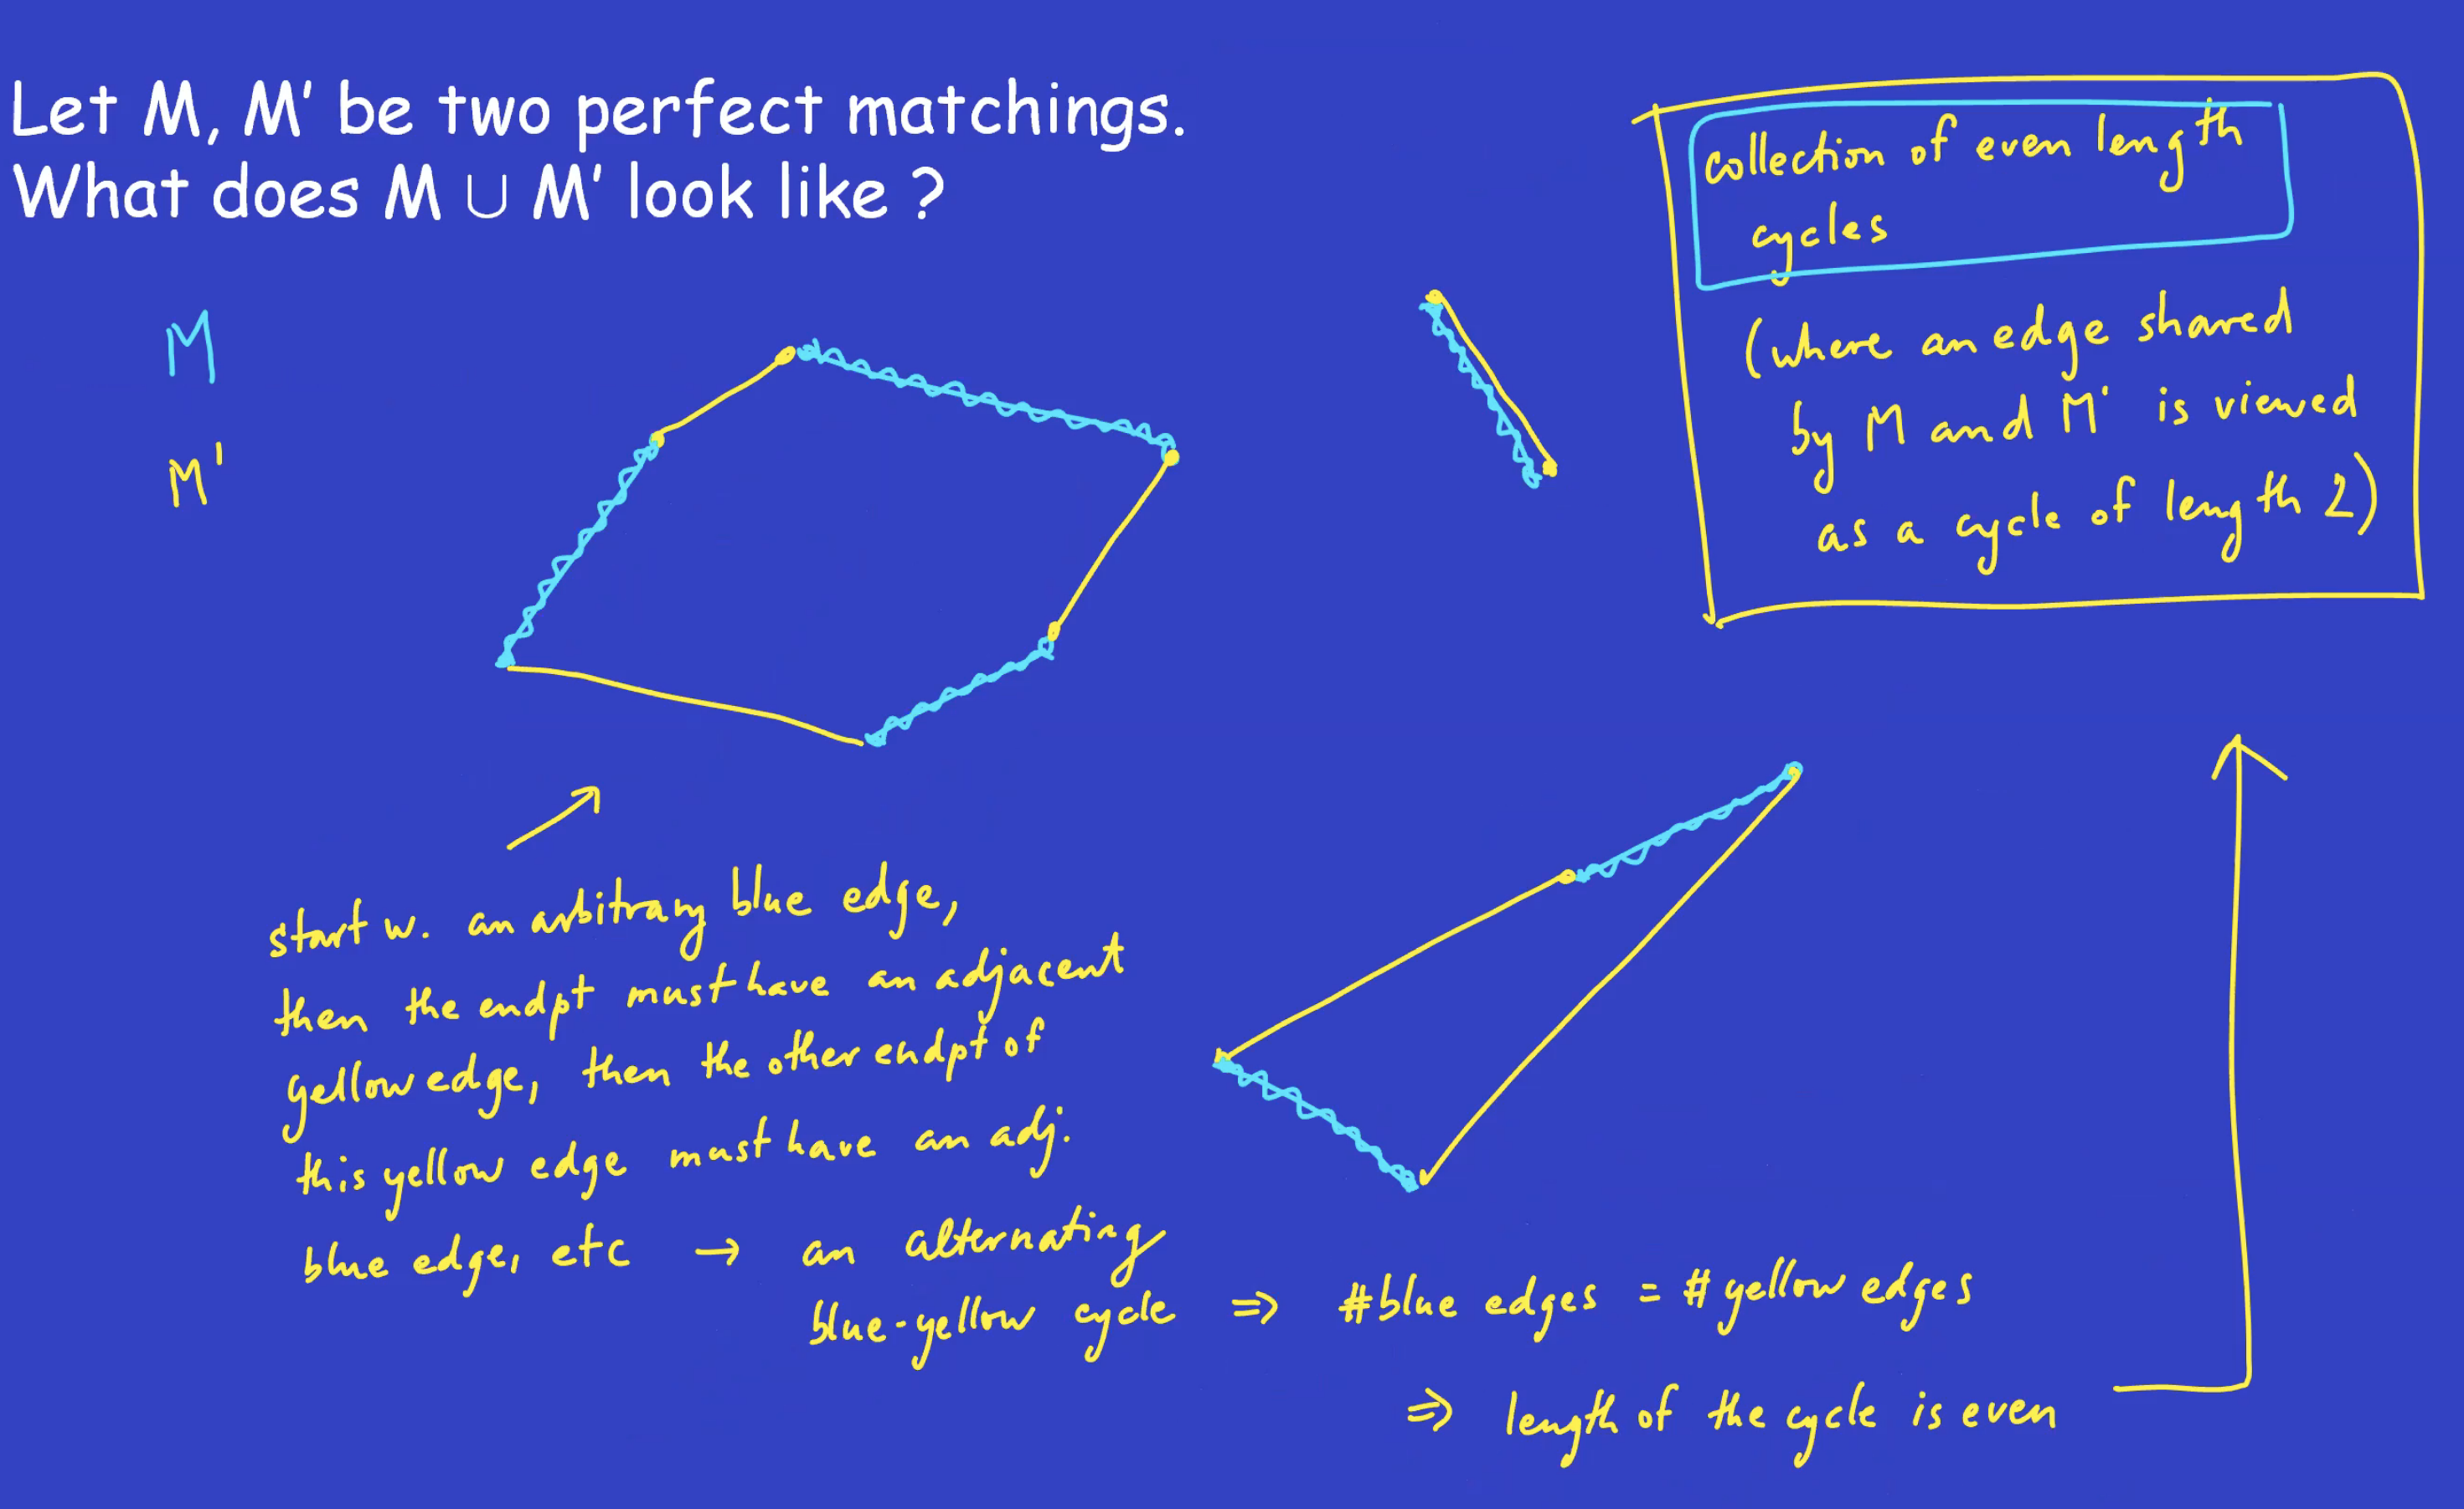 Let M, M' be two perfect matchings.
What does M ∪ M' look like ?
M
M'
collection of even length
cycles
(where an edge shared
by M and M' is viewed
as a cycle of length 2)
start w. an arbitrary blue edge,
then the endpt must have an adjacent
yellow edge, then the other endpt of
this yellow edge must have an adj.
blue edge, etc → an alternating
blue-yellow cycle ⇒ #blue edges = #yellow edges
⇒ length of the cycle is even